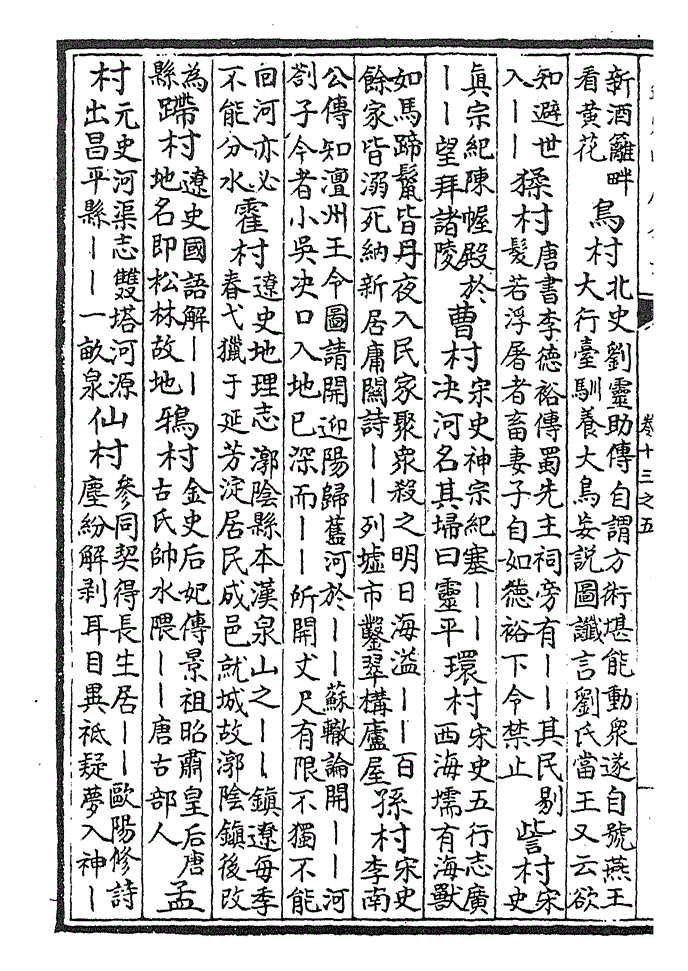 卷十三之五
新酒籬畔看黃花鳥村北史劉靈助傳自謂方術堪能動衆遂自號燕王大行臺馴養大鳥妄説圖讖言劉氏當王又云欲
知避世入——猱村唐書李德裕傳蜀先主祠旁有——其民剔髮若浮屠者畜妻子自如德裕下令禁止訾村宋史
真宗紀陳幄殿於——望拜諸陵曹村宋史神宗紀塞——决河名其埽曰靈平環村宋史五行志廣西海壖有海獸
如馬蹄鬣皆丹夜入民家聚衆殺之明日海溢——百餘家皆溺死納新居庸關詩——列墟市鑿翠構廬屋孫村宋史李南
公傳知澶州王令圖請開迎陽歸舊河於——蘇轍論開——河劄子今者小吳决口入地已深而——所開丈尺有限不獨不能
回河亦必不能分水霍村遼史地理志漷陰縣本漢泉山之——鎮遼每季春弋獵于延芳淀居民成邑就城故漷陰鎮後改
為縣蹛村遼史國語解——地名即松林故地鴉村金史后妃傳景祖昭肅皇后唐古氏帥水隈——唐古部人孟
村元史河渠志雙塔河源出昌平縣——一畝泉仙村參同契得長生居——歐陽修詩塵紛解剥耳目異祗疑夢入神—